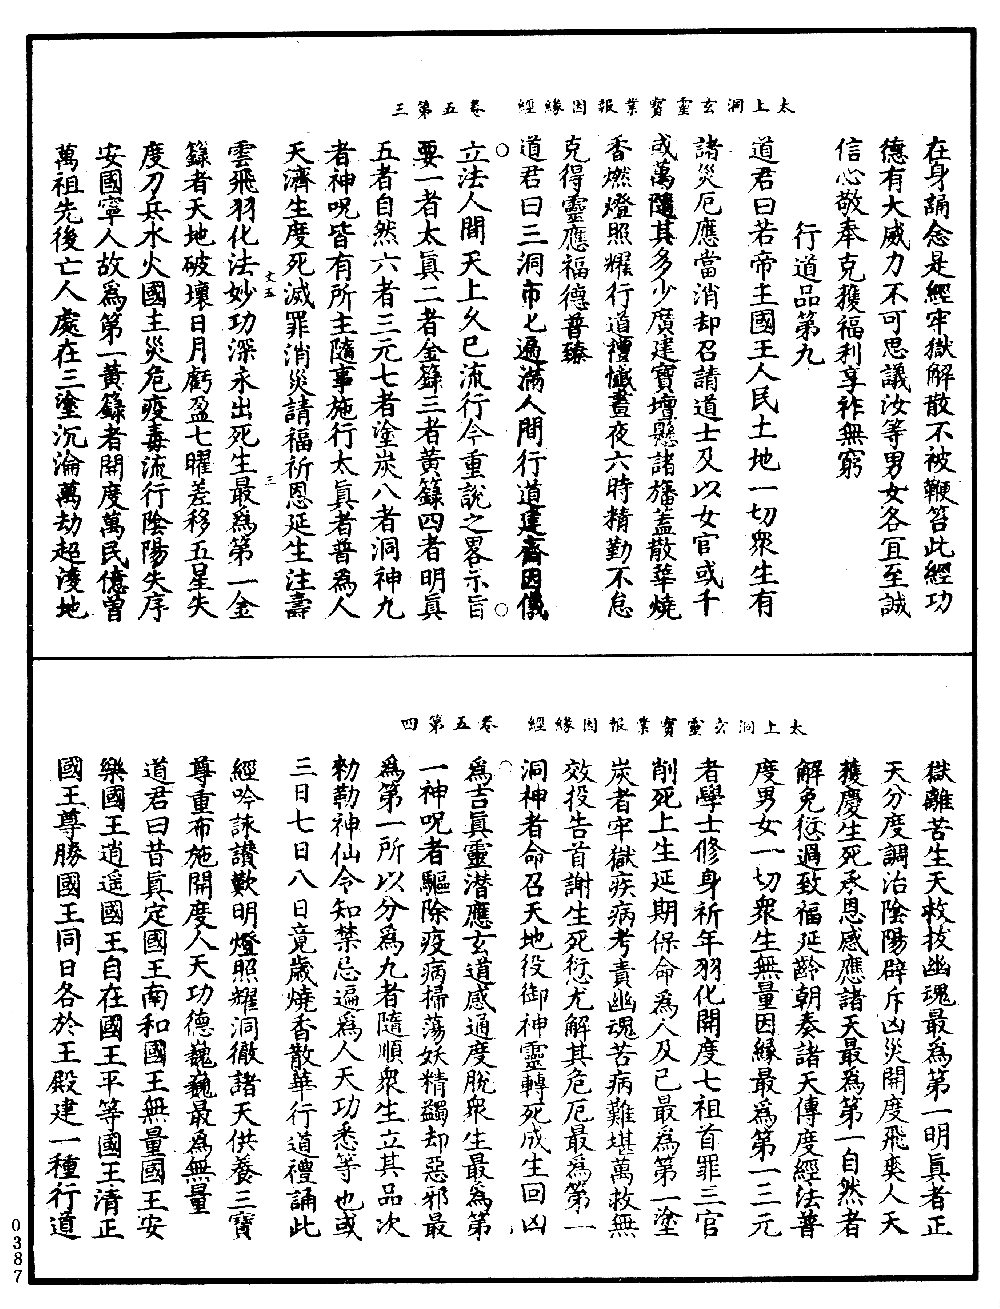 太上洞玄靈寶業報因緣經　卷五第三
在身誦念是經牢獄解散不被鞭笞此經功
德有大威力不可思議汝等男女各宜至誠
信心敬奉克獲福利享祚無窮
行道品第九
道君曰若帝主國王人民土地一切衆生有
諸災厄應當消却召請道士及以女官或千
或萬隨其多少廣建寶壇懸諸旛蓋散華燒
香燃燈照耀行道禮懺晝夜六時精勤不怠
克得靈應福德普臻
道君曰三洞市七遍滿人間行道建齋因儀
立法人間天上久已流行今重說之畧示旨
要一者太真二者金籙三者黃籙四者明真
五者自然六者三元七者塗炭八者洞神九
者神呪皆有所主隨事施行太真者普為人
天濟生度死滅罪消災請福祈恩延生注壽
雲飛羽化法妙功深永出死生最爲第一金
籙者天地破壞日月虧盈七曜差移五星失
度刀兵水火國主災危疫毒流行陰陽失序
安國寧人故爲第一黃籙者開度萬民億曾
萬祖先後亡人處在三塗沉淪萬劫超淩地
丈五　三
太上洞玄靈寶業報因緣經　卷五第四
獄離苦生天救拔幽魂最爲第一明真者正
天分度調治陰陽辟斥凶災開度飛爽人天
獲慶生死承恩感應諸天最爲第一自然者
解免愆過致福延齡朝奏諸天傳度經法普
度男女一切衆生無量因緣最爲第一三元
者學士修身祈年羽化開度七祖首罪三官
削死上生延期保命為人及已最為第一塗
炭者牢獄疾病考責幽魂苦病難堪萬救無
效投告首謝生死愆尤解其危厄最為第一
洞神者命召天地役御神靈轉死成生回凶
爲吉真靈潜應玄道感通度脫衆生最爲第
一神呪者驅除疫病掃蕩妖精蠲却惡邪最
爲第一所以分爲九者隨順衆生立其品次
勑勒神仙令知禁忌遍爲人天功悉等也或
三日七日八日竟歲燒香散華行道禮誦此
經吟詠讃歎明燈照耀洞徹諸天供養三寶
尊重布施開度人天功德巍巍最為無量
道君曰昔真定國王南和國王無量國王安
樂國王逍遥國王自在國王平等國王清正
國王尊勝國王同日各於王殿建一種行道
0387